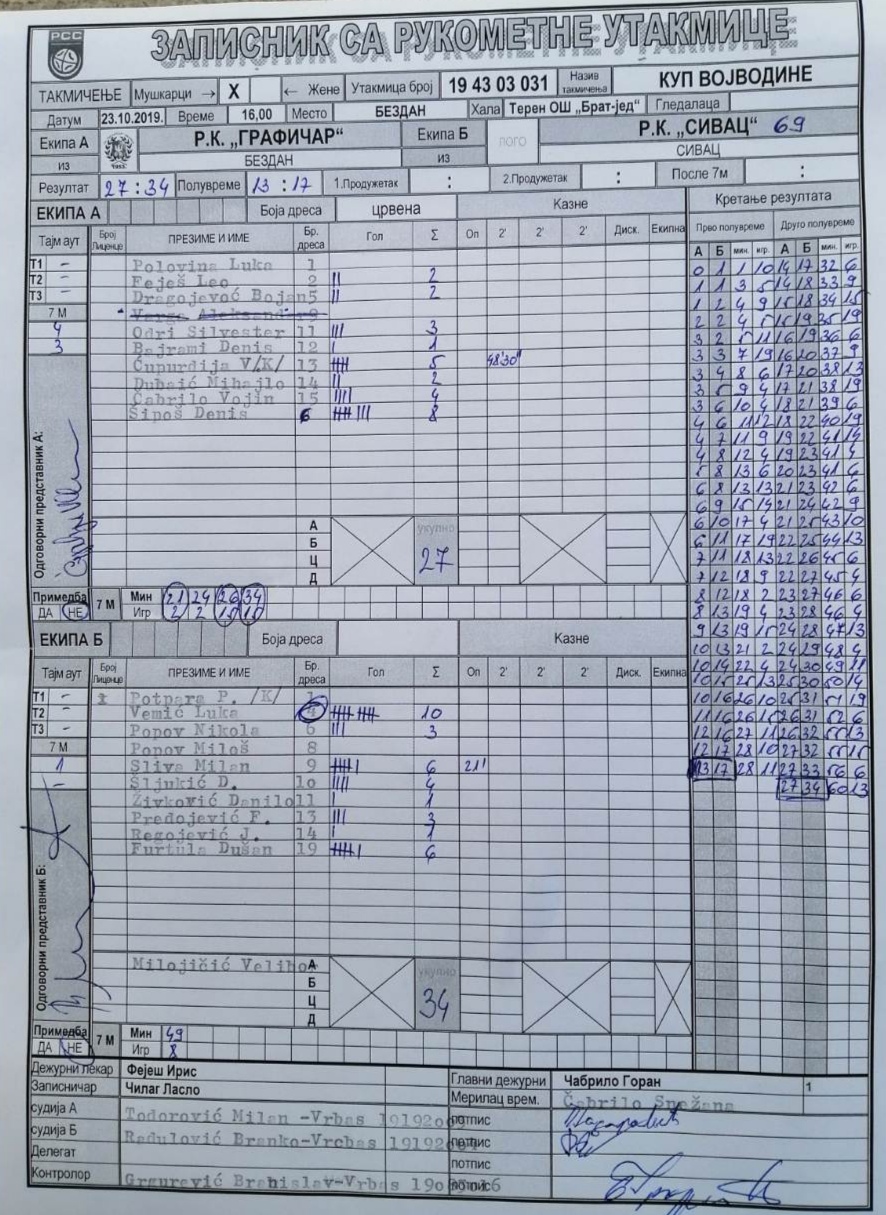 РСС
ЗАПИСНИК СА РУКОМЕТНЕ УТАКМИЦЕ
ТАКМИЧЕЊЕ Мушкарци → X ← Жене Утакмица број 19 43 03 031 Назив такмичења КУП ВОЈВОДИНЕ
Датум 23.10.2019. Време 16,00 Место БЕЗДАН Хала Терен ОШ „Брат-јед“ Гледалаца
Екипа А Р.К. „ГРАФИЧАР“ Екипа Б лого Р.К. „СИВАЦ“ 69
из БЕЗДАН из СИВАЦ
Резултат 27 : 34 Полувреме 13 : 17 1.Продужетак : 2.Продужетак : После 7м :
ЕКИПА А Боја дреса црвена Казне Кретање резултата
Тајм аут Број Лиценце ПРЕЗИМЕ И ИМЕ Бр. дреса Гол Σ Оп 2' 2' 2' Диск. Екипна Прво полувреме Друго полувреме
А Б мин. игр. А Б мин. игр.
Т1 - Polovina Luka 1
Т2 - Feješ Leo 2 II 2
Т3 - Dragojevoć Bojan 5 II 2
7 М Varga Aleksandar 9
4 Odri Silvester 11 III 3
3 Bajrami Denis 12 I 1
Čupurdija V/K/ 13 5 48'30"
Dubaić Mihajlo 14 II 2
Čabrilo Vojin 15 IIII 4
Šipoš Denis 6 8
Одговорни представник А:
А укупно
Б 27
Ц
Д
Примедба ДА НЕ 7 М Мин 21 24 26 34
Игр 2 2 15 15
ЕКИПА Б Боја дреса Казне
Тајм аут Број Лиценце ПРЕЗИМЕ И ИМЕ Бр. дреса Гол Σ Оп 2' 2' 2' Диск. Екипна
Т1 - Potpara P. /K/ 1
Т2 - Vemić Luka 4 10
Т3 - Popov Nikola 6 III 3
7 М Popov Miloš 8
1 Sliva Milan 9 6 21'
- Šljukić D. 10 IIII 4
Živković Danilo 11 I 1
Predojević F. 13 III 3
Regojević J. 14 I 1
Furtula Dušan 19 6
Одговорни представник Б:
Milojičić Velibo А укупно
Б 34
Ц
Д
Примедба ДА НЕ 7 М Мин 49
Игр 8
0 1 1 10 14 17 32 6
1 1 3 5 14 18 33 9
1 2 4 9 15 18 34 15
2 2 4 5 15 19 35 19
3 2 5 11 16 19 36 6
3 3 7 19 16 20 37 9
3 4 8 6 17 20 38 13
3 5 9 4 17 21 38 19
3 6 10 4 18 21 39 6
4 6 11 12 18 22 40 19
4 7 11 9 19 22 41 14
4 8 12 4 19 23 41 4
5 8 13 6 20 23 41 6
6 8 13 13 21 23 42 6
6 9 15 14 21 24 42 9
6 10 17 4 21 25 43 10
6 11 17 19 22 25 44 13
7 11 18 13 22 26 45 6
7 12 18 9 22 27 45 4
8 12 18 2 23 27 46 6
8 13 19 4 23 28 46 4
9 13 19 15 24 28 47 13
10 13 21 2 24 29 48 4
10 14 22 4 24 30 49 11
10 15 25 13 25 30 50 14
10 16 26 10 25 31 51 19
11 16 26 15 26 31 52 6
12 16 27 11 26 32 55 13
12 17 28 10 27 32 55 15
13 17 28 11 27 33 56 6
27 34 60 13
Дежурни лекар Фејеш Ирис Главни дежурни Чабрило Горан 1
Записничар Чилаг Ласло Мерилац врем. Čabrilo Snežana
судија А Todorović Milan -Vrbas потпис
судија Б Radulović Branko-Vrcbas потпис
Делегат потпис
Контролор Grgurević Branislav-Vrbas потпис